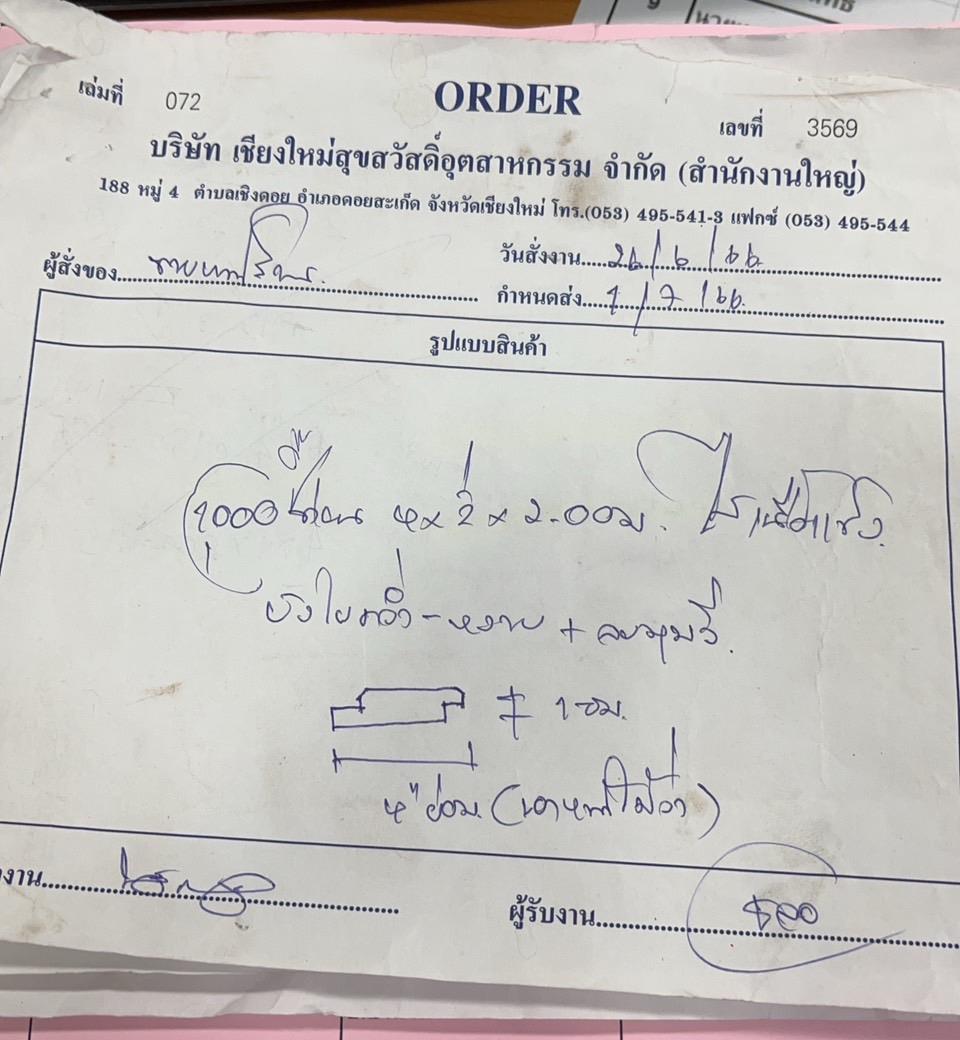 เล่มที่ 072
ORDER
เลขที่ 3569
บริษัท เชียงใหม่สุขสวัสดิ์อุตสาหกรรม จำกัด (สำนักงานใหญ่)
188 หมู่ 4 ตำบลเชิงดอย อำเภอดอยสะเก็ด จังหวัดเชียงใหม่ โทร.(053) 495-541-3 แฟกซ์ (053) 495-544
ผู้สั่งของ
วันสั่งงาน 26/6/66
กำหนดส่ง 1/7/66
รูปแบบสินค้า
1000 4 x 2 x 2.00 ม.
บังใบคว่ำ-หงาย + ลบมุมวี
1 ซม.
4"
งาน
ผู้รับงาน